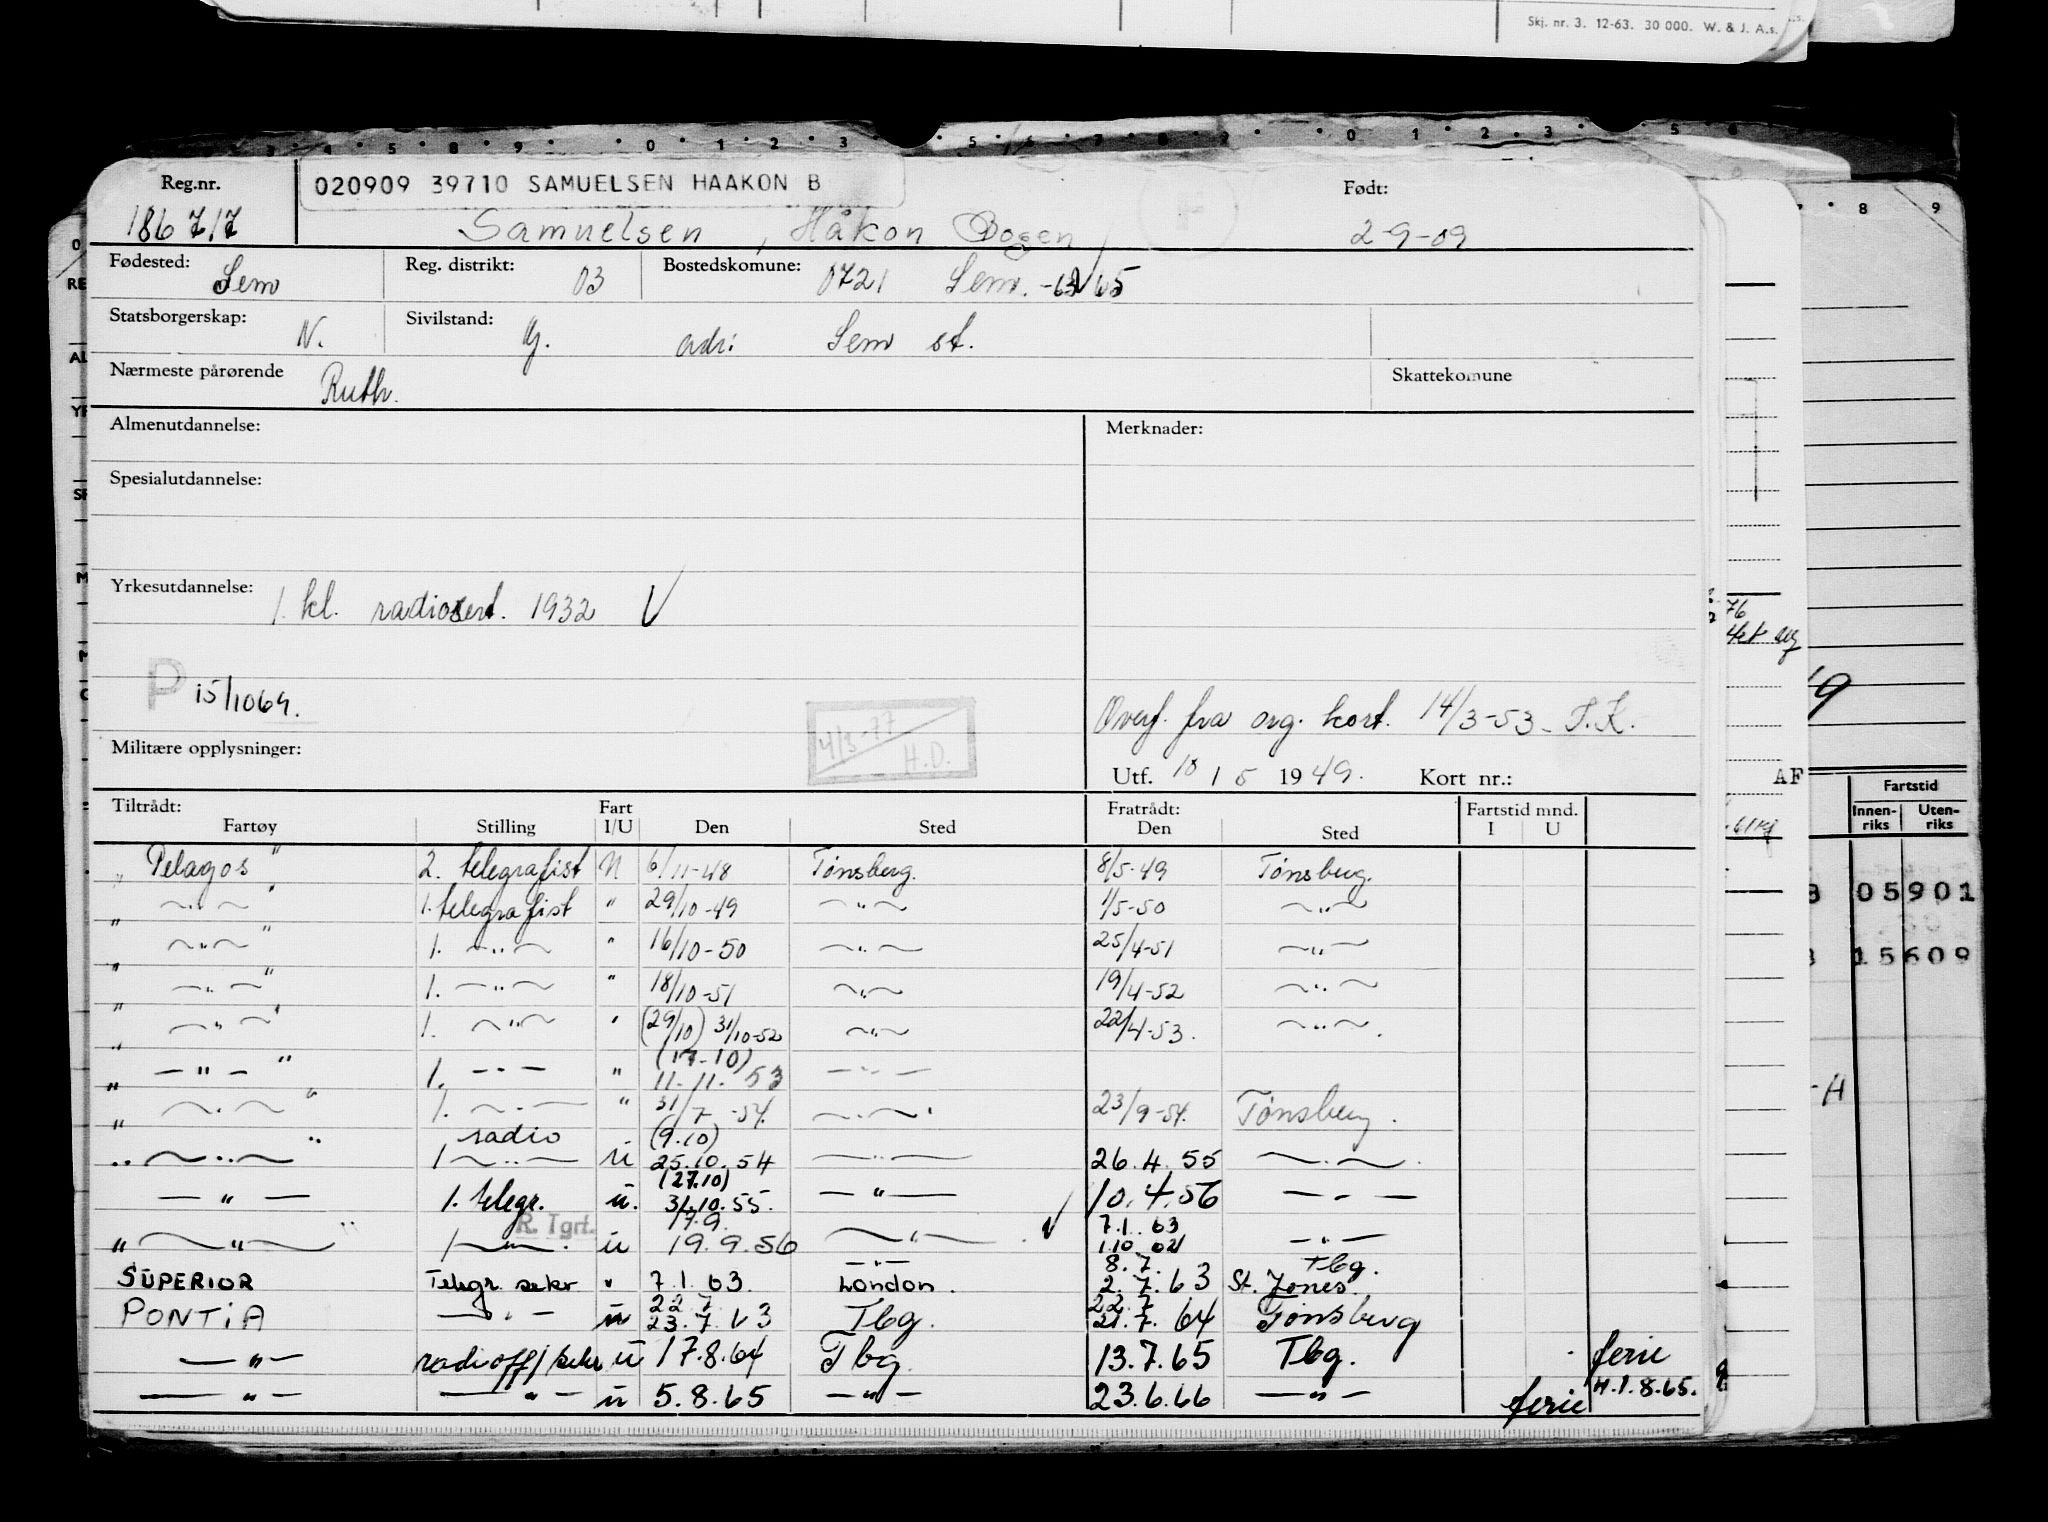 Skj. nr. 3. 12-63. 30 000. W. & J. A.s.
Reg.nr. 020909 39710 SAMUELSEN HAAKON B Født:
186717 Samuelsen, Håkon Bogen 2-9-09
Fødested: Sem Reg. distrikt: 03 Bostedskomune: 0721 Sem.
Statsborgerskap: N. Sivilstand: g. adr: Sem st.
Nærmeste pårørende Ruth. Skattekomune
Almenutdannelse: Merknader:
Spesialutdannelse:
Yrkesutdannelse: 1. kl. radiosert. 1932 V
P 15/1069.
4/3-77 H.D.
Overf. fra org. kort. 14/3-53 - T.K.
Militære opplysninger: Utf. 10 / 5 1949. Kort nr.:
Tiltrådt: Fart Fratrådt: Fartstid mnd.
Fartøy Stilling I/U Den Sted Den Sted I U
" Pelagos " 2. telegrafist U 6/11-48 Tønsberg. 8/5-49 Tønsberg.
" —"— " 1. telegrafist " 29/10-49 —"— 1/5-50 —"—
" —"— " 1. —"— " 16/10-50 —"— 25/4-51 —"—
" —"— " 1. —"— " 18/10-51 —"— 19/4-52 —"—
" —"— " 1. —"— " (29/10) 31/10-52 —"— 22/4-53. —"—
" —"— " 1. —"— " (17-10) 11.11.53 —"—
" —"— " 1. —"— " 31/7-54. —"— 23/9-54. Tønsberg.
" —"— " 1 radio —"— u (9.10) 25.10.54 —"— 26.4.55 —"—
—"— 1. telegr. u. (27.10) 31.10.55. —"— 10.4.56 —"—
" —"— " R. Tgrf. 1 —"— u 17.9. 19.9.56 —"— V 7.1.63 —"—
SUPERIOR Telegr. sekr " 7.1.63. London. 8.7. 2.7.63 Tbg. St. Jones.
PONTIA —"— u 22.7. 23.7.63 Tbg. 22.7. 21.7.64 Tønsberg
—"— radioff/sekr u 17.8.64 Tbg. 13.7.65 Tbg. ferie H.1.8.65.
—"— —"— u 5.8.65 —"— 23.6.66 —"— ferie
Fartstid
Innen-riks Uten-riks
05901
15609